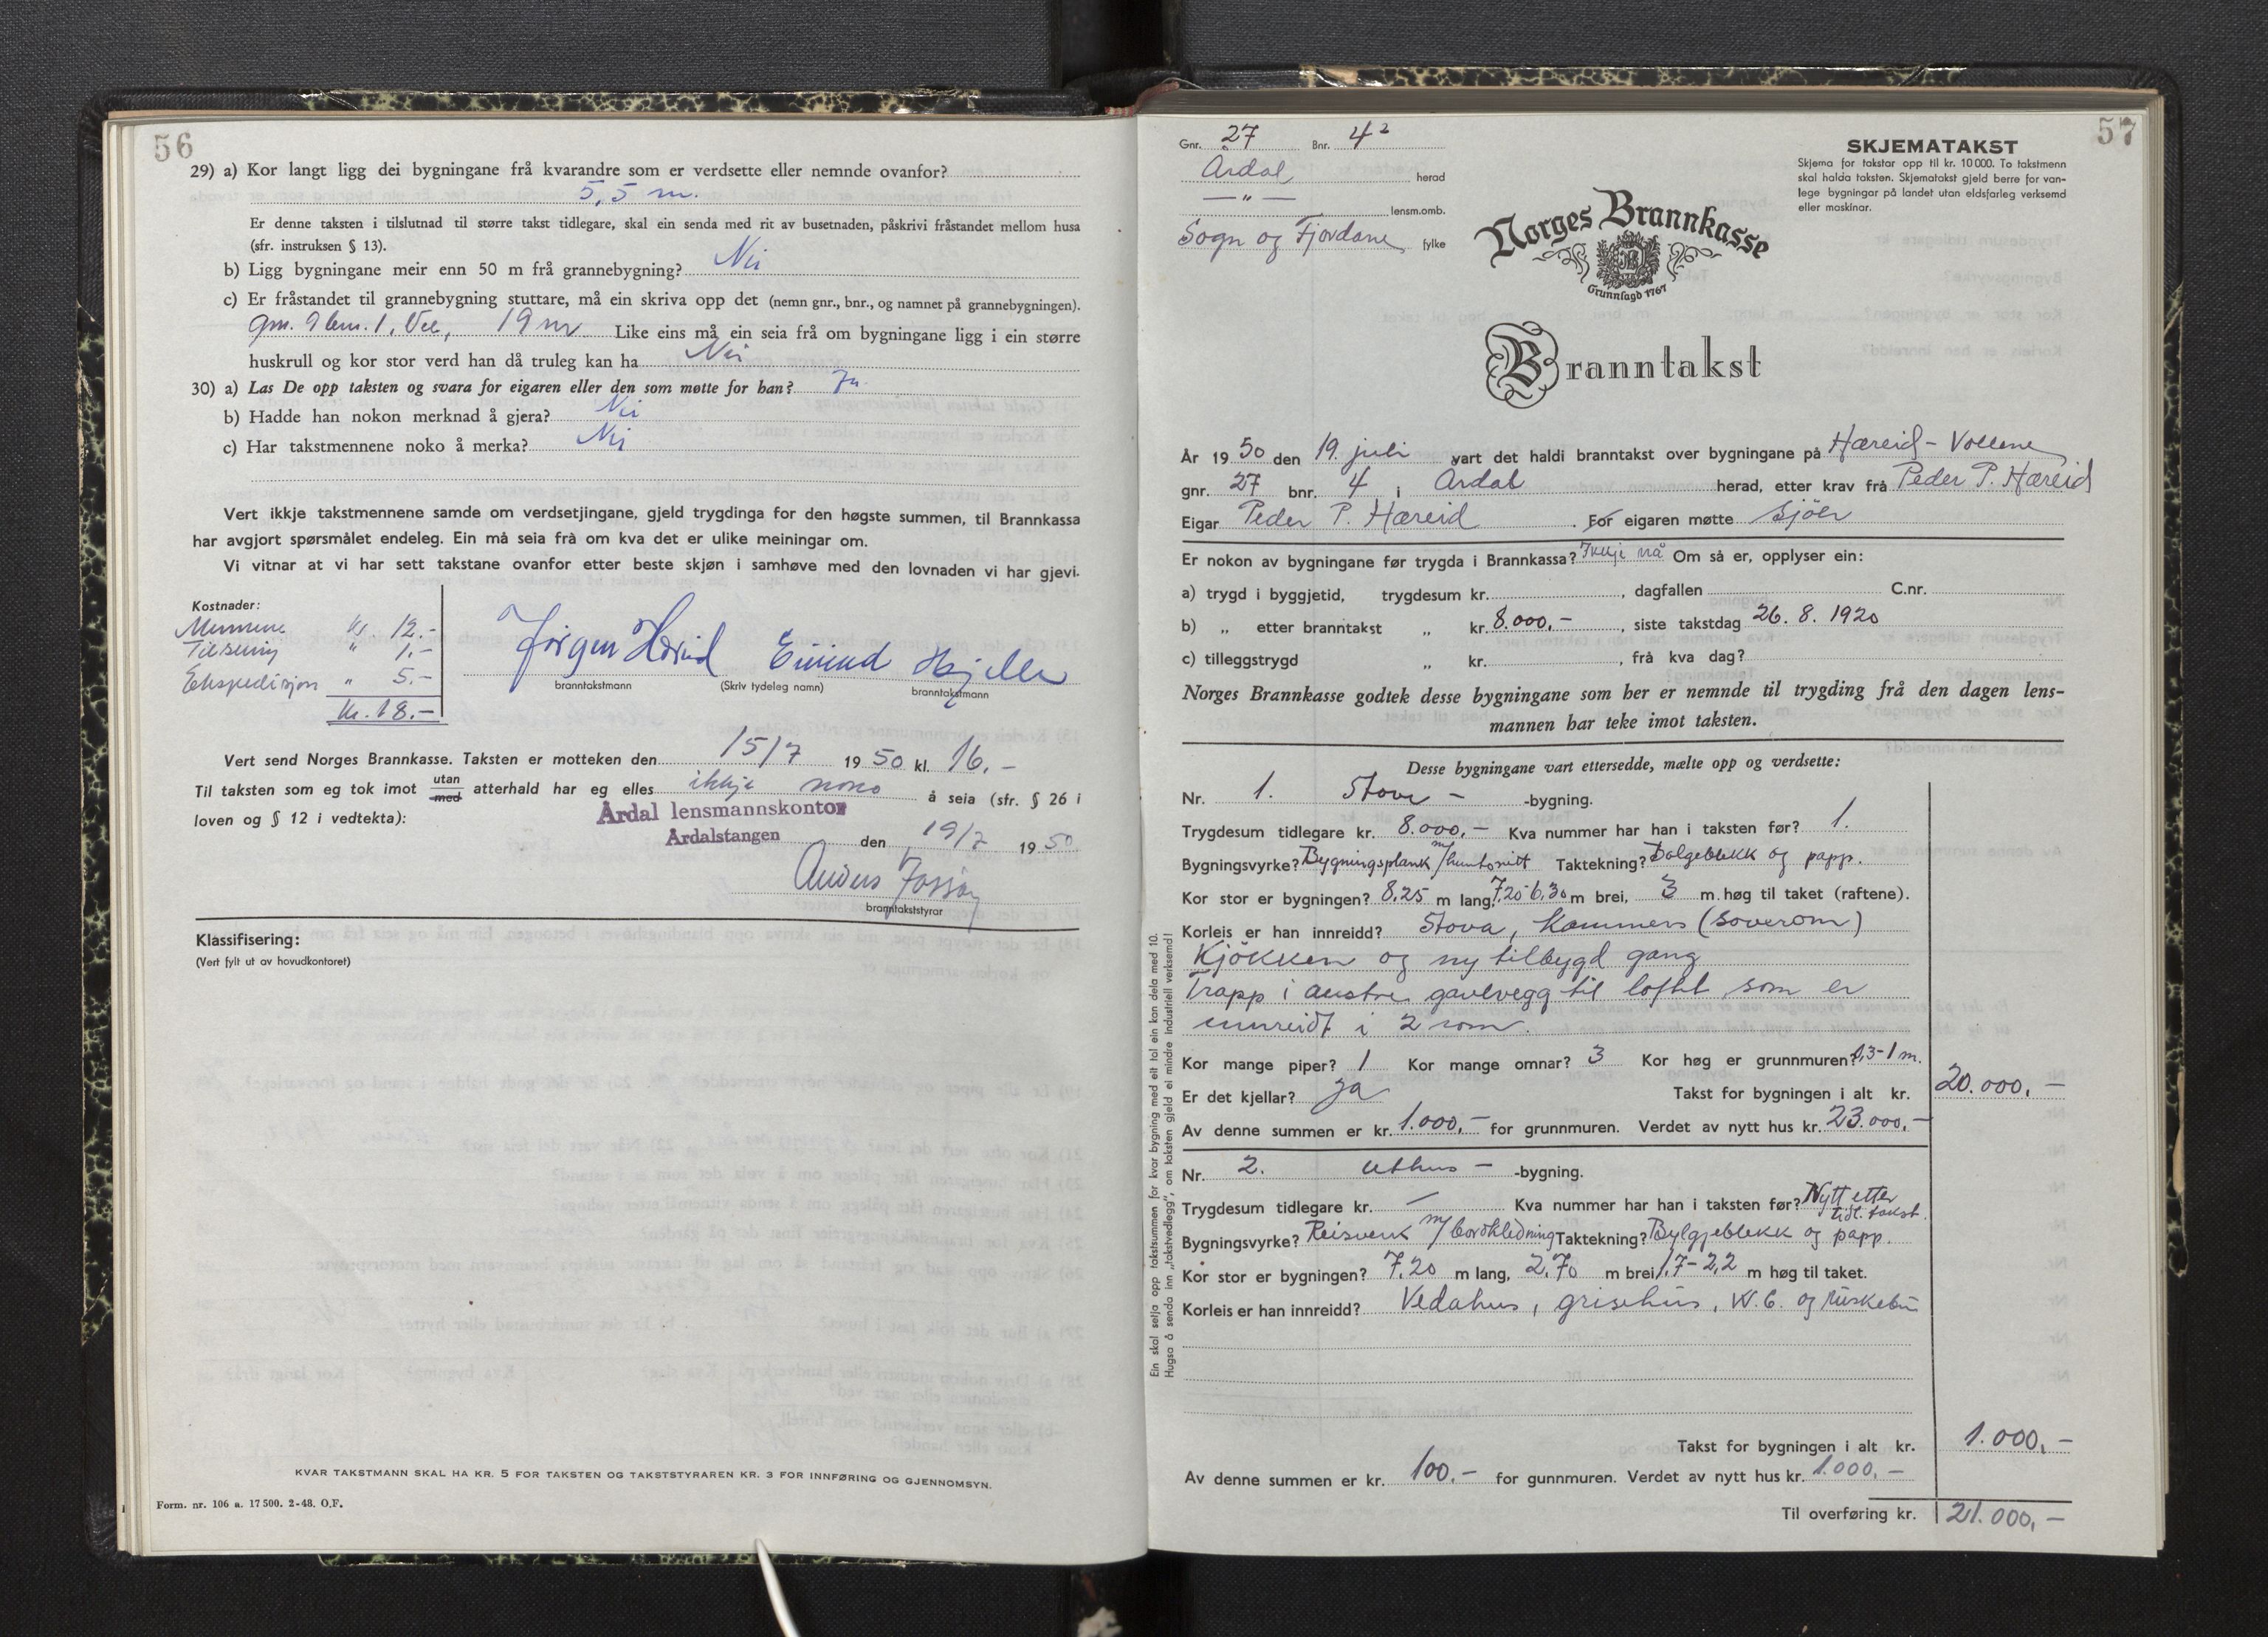 56
29) a) Kor langt ligg dei bygningane frå kvarandre som er verdsette eller nemnde ovanfor?
5,5 m.
Er denne taksten i tilslutnad til større takst tidlegare, skal ein senda med rit av busetnaden, påskrivi fråstandet mellom husa
(sfr. instruksen § 13).
b) Ligg bygningane meir enn 50 m frå grannebygning? Nei
c) Er fråstandet til grannebygning stuttare, må ein skriva opp det (nemn gnr., bnr., og namnet på grannebygningen).
gnr. 9 bnr. 1, Vee, 19 m Like eins må ein seia frå om bygningane ligg i ein større
huskrull og kor stor verd han då truleg kan ha Nei
30) a) Las De opp taksten og svara for eigaren eller den som møtte for han? Ja
b) Hadde han nokon merknad å gjera? Nei
c) Har takstmennene noko å merka? Nei
Vert ikkje takstmennene samde om verdsetjingane, gjeld trygdinga for den høgste summen, til Brannkassa
har avgjort spørsmålet endeleg. Ein må seia frå om kva det er ulike meiningar om.
Vi vitnar at vi har sett takstane ovanfor etter beste skjøn i samhøve med den lovnaden vi har gjevi.
Kostnader:
Mennene kr 12.-
" 1.-
Ekspedisjon " 5.-
kr. 18.-
Jørgen Hæreid Eivind Hjelle
branntakstmann (Skriv tydeleg namn) branntakstmann
Vert send Norges Brannkasse. Taksten er motteken den 15/7 1950 kl. 16.-
Til taksten som eg tok imot utan med atterhald har eg elles ikkje noko å seia (sfr. § 26 i
loven og § 12 i vedtekta):
Årdal lensmannskontor
Årdalstangen den 19/7 1950
Anders
branntakststyrar
Klassifisering:
(Vert fylt ut av hovudkontoret)
KVAR TAKSTMANN SKAL HA KR. 5 FOR TAKSTEN OG TAKSTSTYRAREN KR. 3 FOR INNFØRING OG GJENNOMSYN.
Form. nr. 106 a. 17 500. 2-48. O.F.
57
Gnr. 27 Bnr. 4²
Årdal herad
— " — lensm.omb.
Sogn og Fjordane fylke
SKJEMATAKST
Skjema for takstar opp til kr. 10 000. To takstmenn
skal halda taksten. Skjematakst gjeld berre for van-
lege bygningar på landet utan eldsfarleg verksemd
eller maskinar.
Norges Brannkasse
Grunnlagd 1767
Branntakst
År 1950 den 19. juli vart det haldi branntakst over bygningane på Hæreid - Vollene
gnr. 27 bnr. 4 i Årdal herad, etter krav frå Peder P. Hæreid
Eigar Peder P. Hæreid. For eigaren møtte Sjölv
Er nokon av bygningane før trygda i Brannkassa? Ikkje nå Om så er, opplyser ein:
a) trygd i byggjetid, trygdesum kr. , dagfallen C.nr.
b) „ etter branntakst „ kr. 8.000,- , siste takstdag 26. 8. 1920
c) tilleggstrygd „ kr. , frå kva dag?
Norges Brannkasse godtek desse bygningane som her er nemnde til trygding frå den dagen lens-
mannen har teke imot taksten.
Desse bygningane vart ettersedde, mælte opp og verdsette:
Nr. 1. Stove - -bygning.
Trygdesum tidlegare kr. 8.000,- Kva nummer har han i taksten før? 1.
Bygningsvyrke? Bygningsplank m/ Taktekning? Bolgeblekk og papp.
Kor stor er bygningen? 8,25 m lang, 7,20-6,30 m brei, 3 m. høg til taket (raftene).
Korleis er han innreidd? Stova, Kammers (soverom)
Kjøkken og ny tilbygd gang
Trapp i austre gavlvegg til loftet som er
innreidt i 2 rom.
Kor mange piper? 1 Kor mange omnar? 3 Kor høg er grunnmuren? 0,3-1 m.
Er det kjellar? Ja Takst for bygningen i alt kr. 20.000,-
Av denne summen er kr. 1.000,- for grunnmuren. Verdet av nytt hus kr. 23.000,-
Nr. 2. Uthus - -bygning.
Trygdesum tidlegare kr. — Kva nummer har han i taksten før? Nytt etter tidl. takst.
Bygningsvyrke? Reisverk m/ bordkledning Taktekning? Bylgjeblekk og papp.
Kor stor er bygningen? 7,20 m lang, 2,70 m brei 1,7-2,2 m høg til taket.
Korleis er han innreidd? Vedahus, grisehus, W.C. og ruskebu
Takst for bygningen i alt kr. 1.000,-
Av denne summen er kr. 100,- for gunnmuren. Verdet av nytt hus kr. 1.000,-
Til overføring kr. 21.000,-
Ein skal setja opp takstsummen for kvar bygning med eit tal ein kan dela med 10.
Hugsa å senda inn „takstvedlegg”, om taksten gjeld ei mindre industriell verksemd!